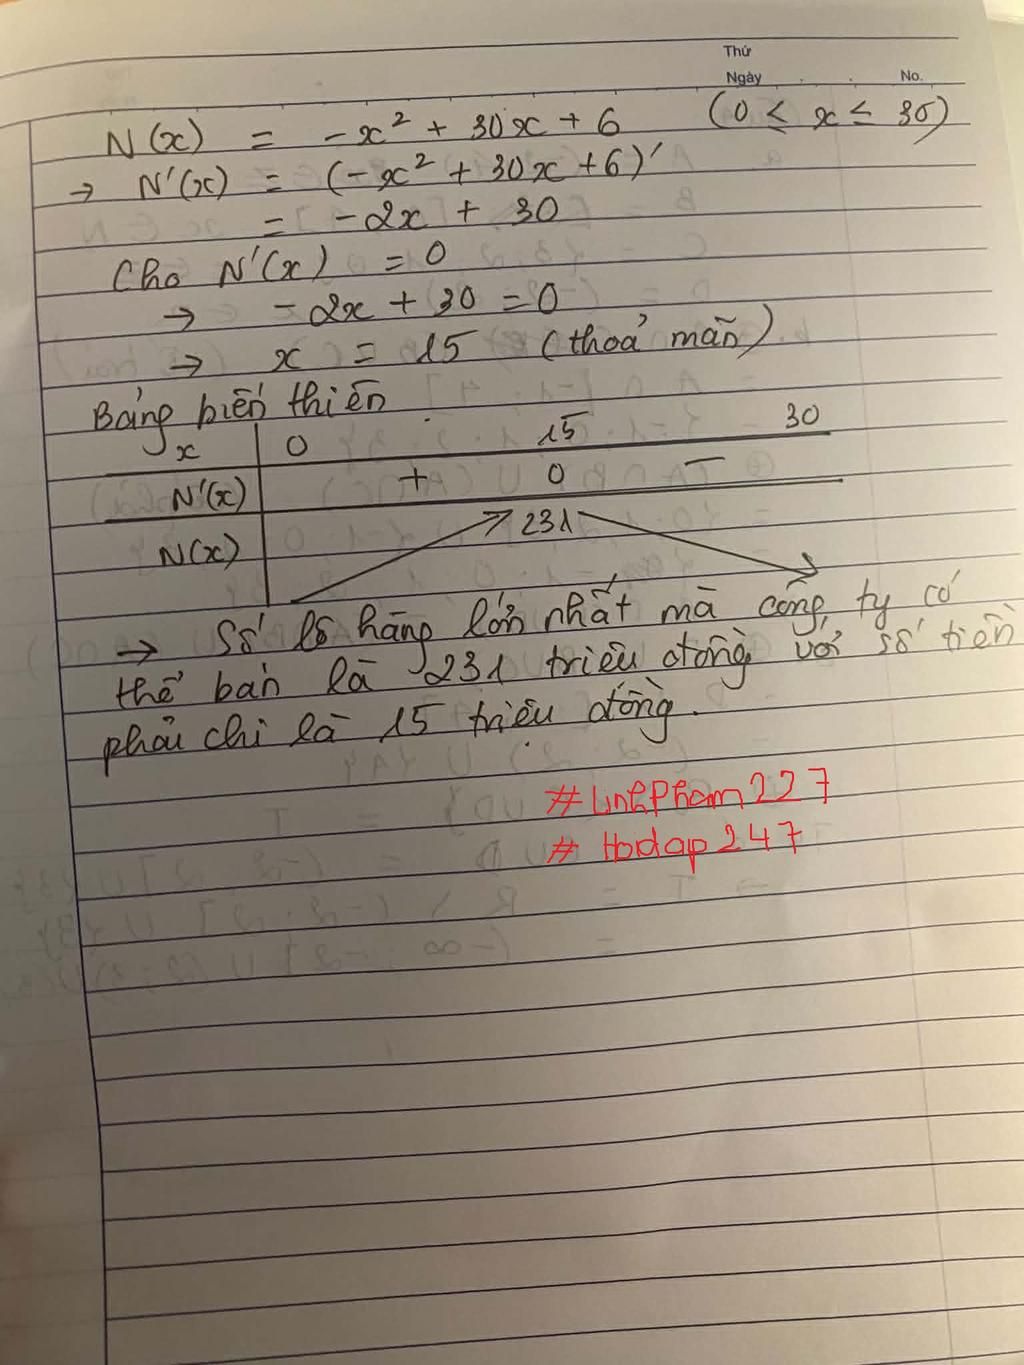 Thứ
Ngày . . No.
N(x) = -x² + 30x + 6 (0 ≤ x ≤ 30)
→ N'(x) = (-x² + 30x + 6)'
= -2x + 30
Cho N'(x) = 0
→ -2x + 30 = 0
→ x = 15 (thoả mãn)
Bảng biến thiên
x 0 15 30
N'(x) + 0 -
N(x) 231
→ Số lô hàng lớn nhất mà công ty có
thể bán là 231 triệu đồng với số tiền
phải chi là 15 triệu đồng.
#LinhPham227
# Hoidap247